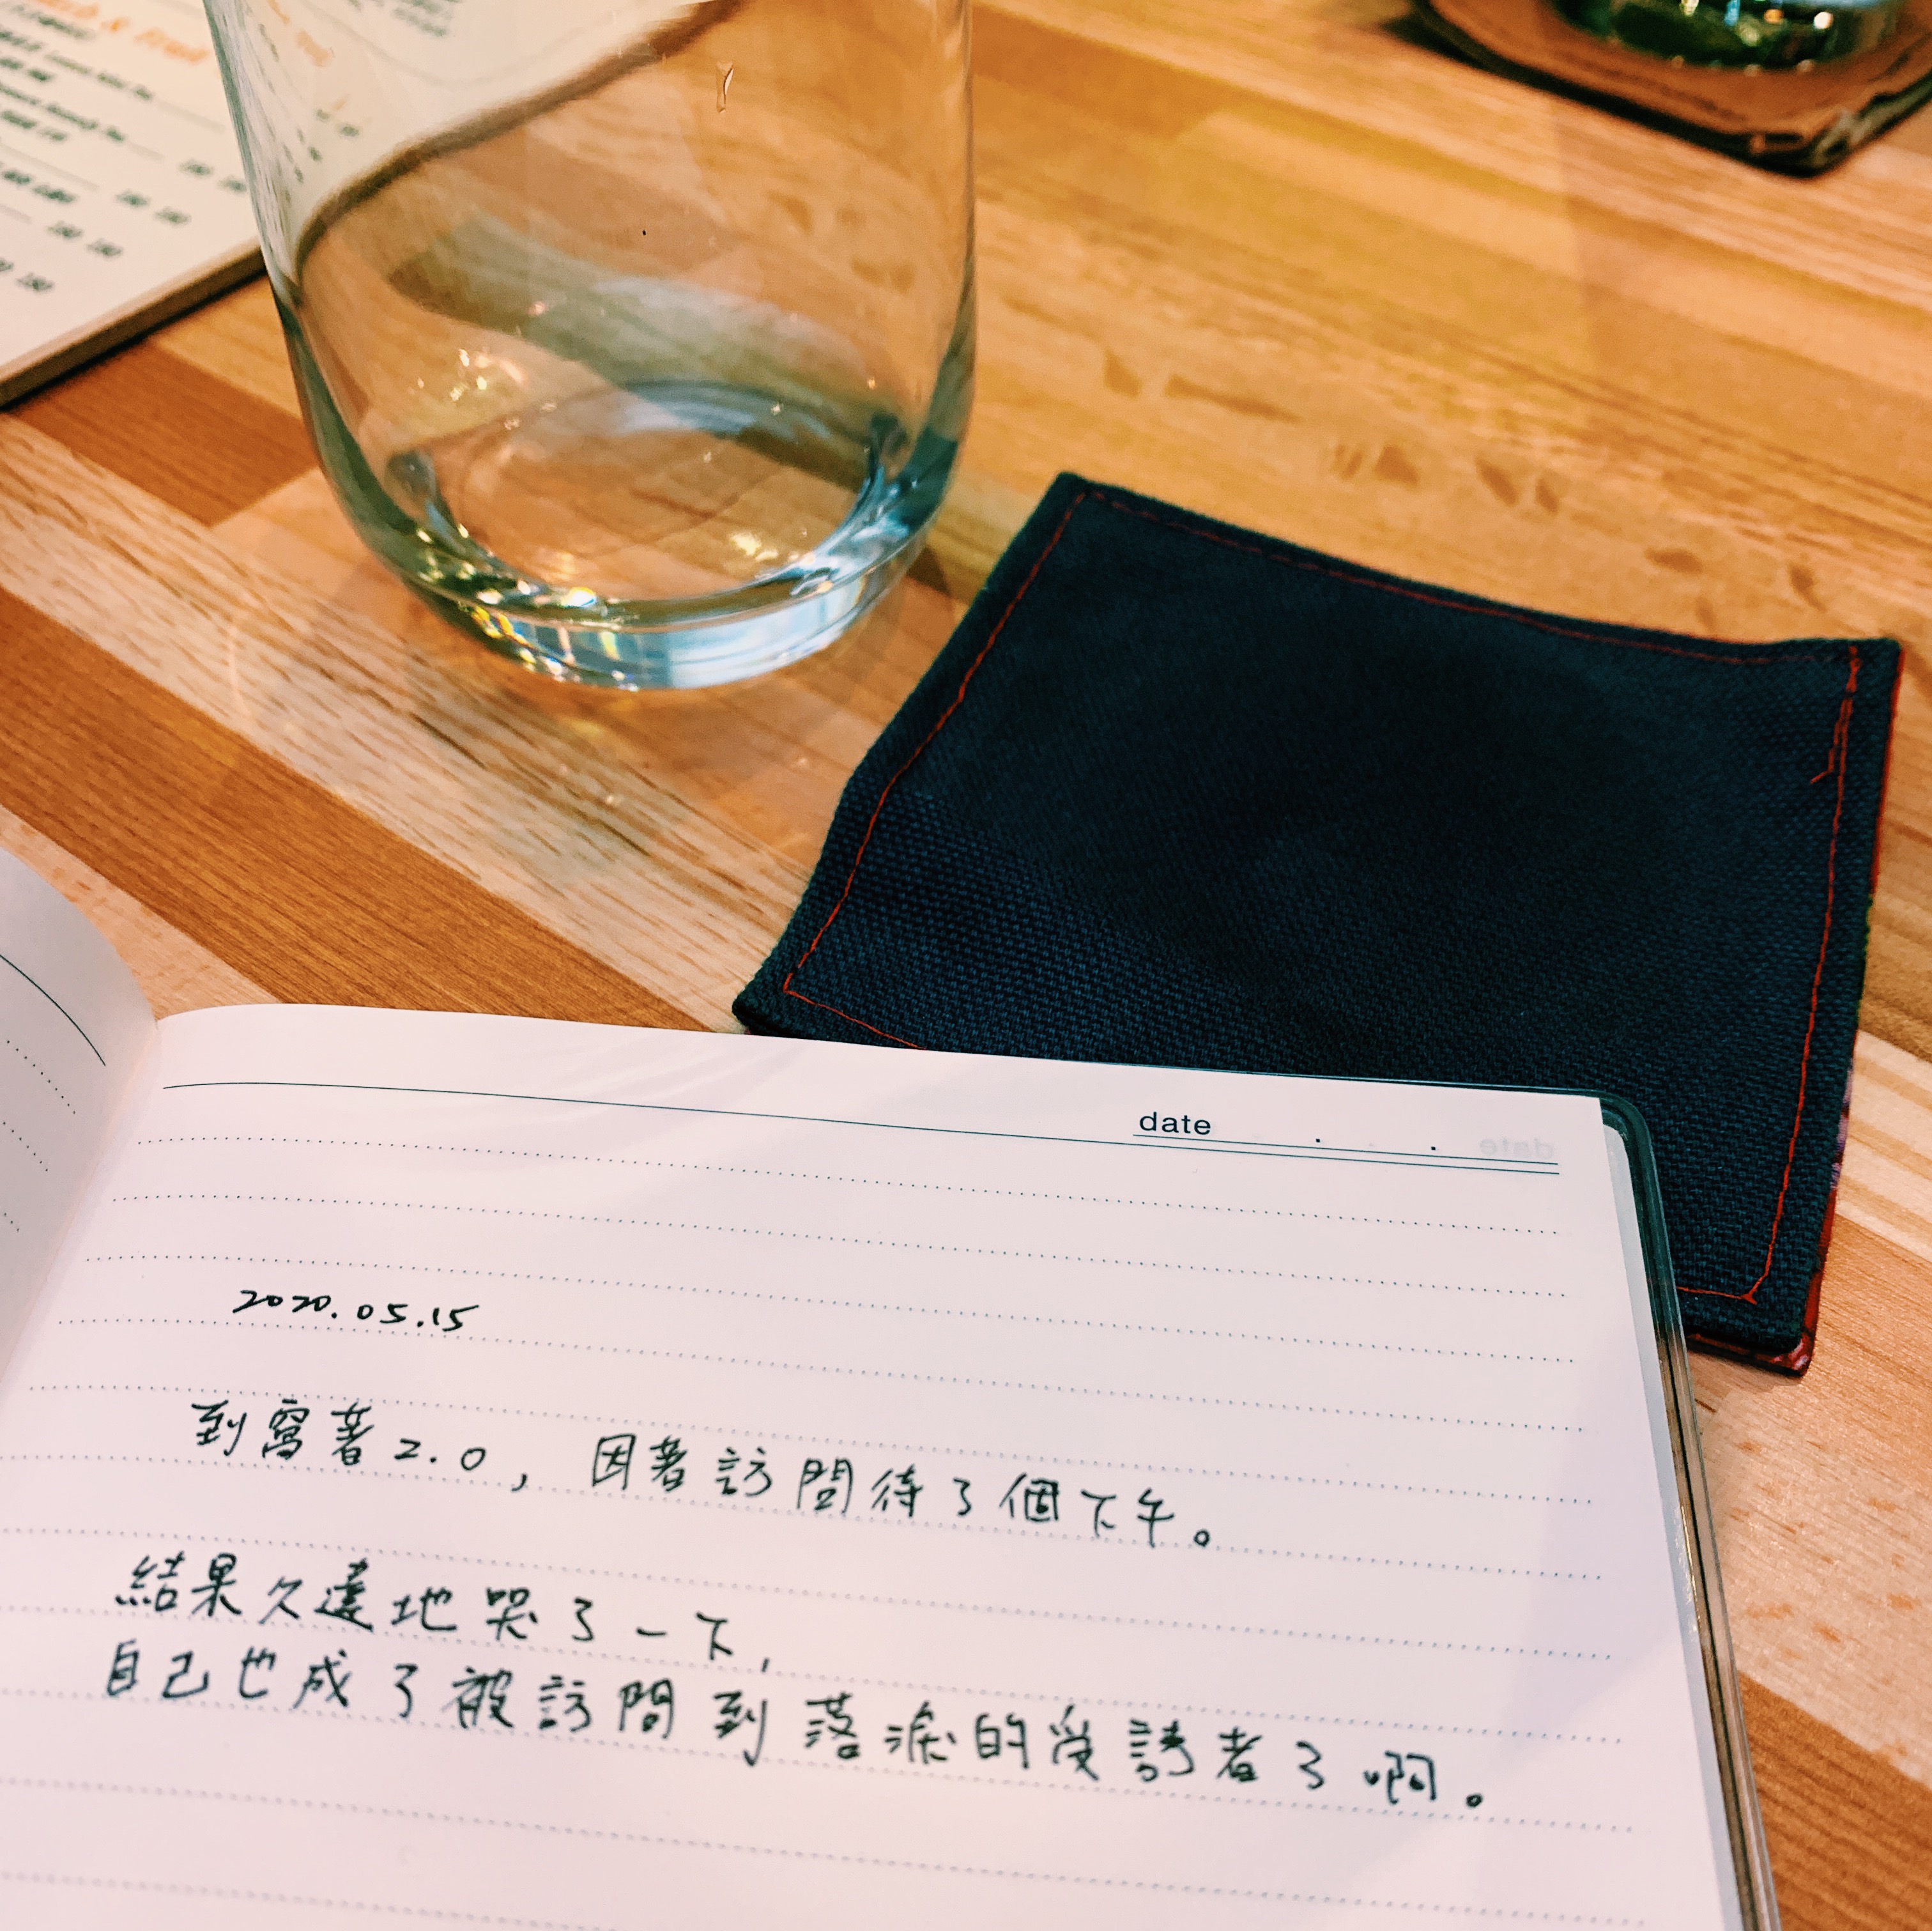 & Fruit
date . .
2020.05.15
到窩著2.0，因著訪問待了個下午。
結果久違地哭了一下，
自己也成了被訪問到落淚的受訪者了啊。